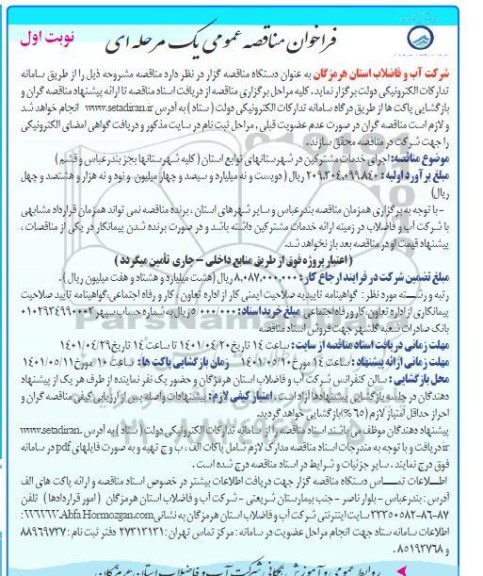 نوبت اول
فراخوان مناقصه عمومی یک مرحله ای
شرکت آب و فاضلاب استان هرمزگان به عنوان دستگاه مناقصه گزار در نظر دارد مناقصه مشروحه ذیل را از طریق سامانه
تدارکات الکترونیکی دولت برگزار نماید. کلیه مراحل برگزاری مناقصه از دریافت اسناد مناقصه تا ارائه پیشنهاد مناقصه گران و
بازگشایی پاکت ها از طریق درگاه سامانه تدارکات الکترونیکی دولت ( ستاد ) به آدرس www.setadiran.ir انجام خواهد شد
و لازم است مناقصه گران در صورت عدم عضویت قبلی، مراحل ثبت نام در سایت مذکور و دریافت گواهی امضای الکترونیکی
را جهت شرکت در مناقصه محقق سازند.
موضوع مناقصه: اجرای خدمات مشترکین در شهرستانهای توابع استان ( کلیه شهرستانها بجز بندرعباس و قشم )
مبلغ برآورد اولیه : ۲۰۹,۳۰۴,۰۹۹,۸۴۰ ریال ( دویست و نه میلیارد و سیصد و چهار میلیون و نود و نه هزار و هشتصد و چهل
ریال)
- با توجه به برگزاری همزمان مناقصه بندرعباس و سایر شهرهای استان ، برنده مناقصه نمی تواند همزمان قرارداد مشابهی
با شرکت آب و فاضلاب در زمینه ارائه خدمات مشترکین داشته باشد و در صورت برنده شدن پیمانکار در یکی از مناقصات ،
پیشنهاد قیمت او در مناقصه بعد باز نخواهد شد.
( اعتبار پروژه فوق از طریق منابع داخلی - جاری تأمین میگردد )
مبلغ تضمین شرکت در فرایند ارجاع کار : ۸,۰۸۷,۰۰۰,۰۰۰ ریال (هشت میلیارد و هشتاد و هفت میلیون ریال ) .
رتبه و رسته مورد نظر : گواهینامه تاییدیه صلاحیت ایمنی کار از اداره تعاون ، کار و رفاه اجتماعی، گواهینامه تایید صلاحیت
پیمانکاری از اداره تعاون، کار و رفاه اجتماعی مبلغ خرید اسناد: ۵,۰۰۰,۰۰۰ ریال به شماره حساب سپهر ۰۱۰۲۹۳۴۶۹۹۰۰۰۳
بانک صادرات شعبه گلشهر جهت فروش اسناد مناقصه
مهلت زمانی دریافت اسناد مناقصه از سایت : ساعت ۱۴ تاریخ ۱۴۰۱/۰۴/۲۰ تا ساعت ۱۴ تاریخ ۱۴۰۱/۰۴/۲۹
مهلت زمانی ارائه پیشنهاد : ساعت ۱۴ مورخ ۱۴۰۱/۰۵/۱۰ زمان بازگشایی پاکت ها : ساعت ۱۰ مورخ ۱۴۰۱/۰۵/۱۱
محل بازگشایی : سالن کنفرانس شرکت آب و فاضلاب استان هرمزگان و حضور یک نفر نماینده از طرف هر یک از پیشنهاد
دهندگان در جلسه بازگشایی پیشنهادها آزاد است . امتیاز کیفی لازم : پیشنهادات واصله پس از ارزیابی کیفی مناقصه گران و
احراز حداقل امتیاز لازم (۶۵٪) بازگشایی خواهد گردید.
پیشنهاد دهندگان موظف می باشند اسناد مناقصه را از سامانه تدارکات الکترونیکی دولت ( ستاد ) به آدرس www.setadiran.
ir دریافت و با توجه به مندرجات اسناد مناقصه مدارک لازم شامل پاکات الف ، ب و ج تهیه و به صورت فایلهای pdf در سامانه
فوق درج نمایند . سایر جزئیات و شرایط در اسناد مناقصه درج شده است .
اطلاعات تماس دستگاه مناقصه گزار جهت دریافت اطلاعات بیشتر در خصوص اسناد مناقصه و ارائه پاکت های الف
آدرس : بندرعباس - بلوار ناصر - جنب بیمارستان شریعتی - شرکت آب و فاضلاب استان هرمزگان ( امور قراردادها ) تلفن
۸۷-۳۳۳۵۰۵۸۲-۸۶ سایت اینترنتی شرکت آب و فاضلاب استان هرمزگان به نشانی Abfa Hormozgan.com
اطلاعات سامانه ستاد جهت انجام مراحل عضویت در سامانه : مرکز تماس تهران : ۲۷۳۱۳۱۳۱ دفتر ثبت نام : ۸۸۹۶۹۷۳۷
و ۸۵۱۹۳۷۶۸ .
روابط عمومی و آموزش همگانی شرکت آب و فاضلاب استان هرمزگان